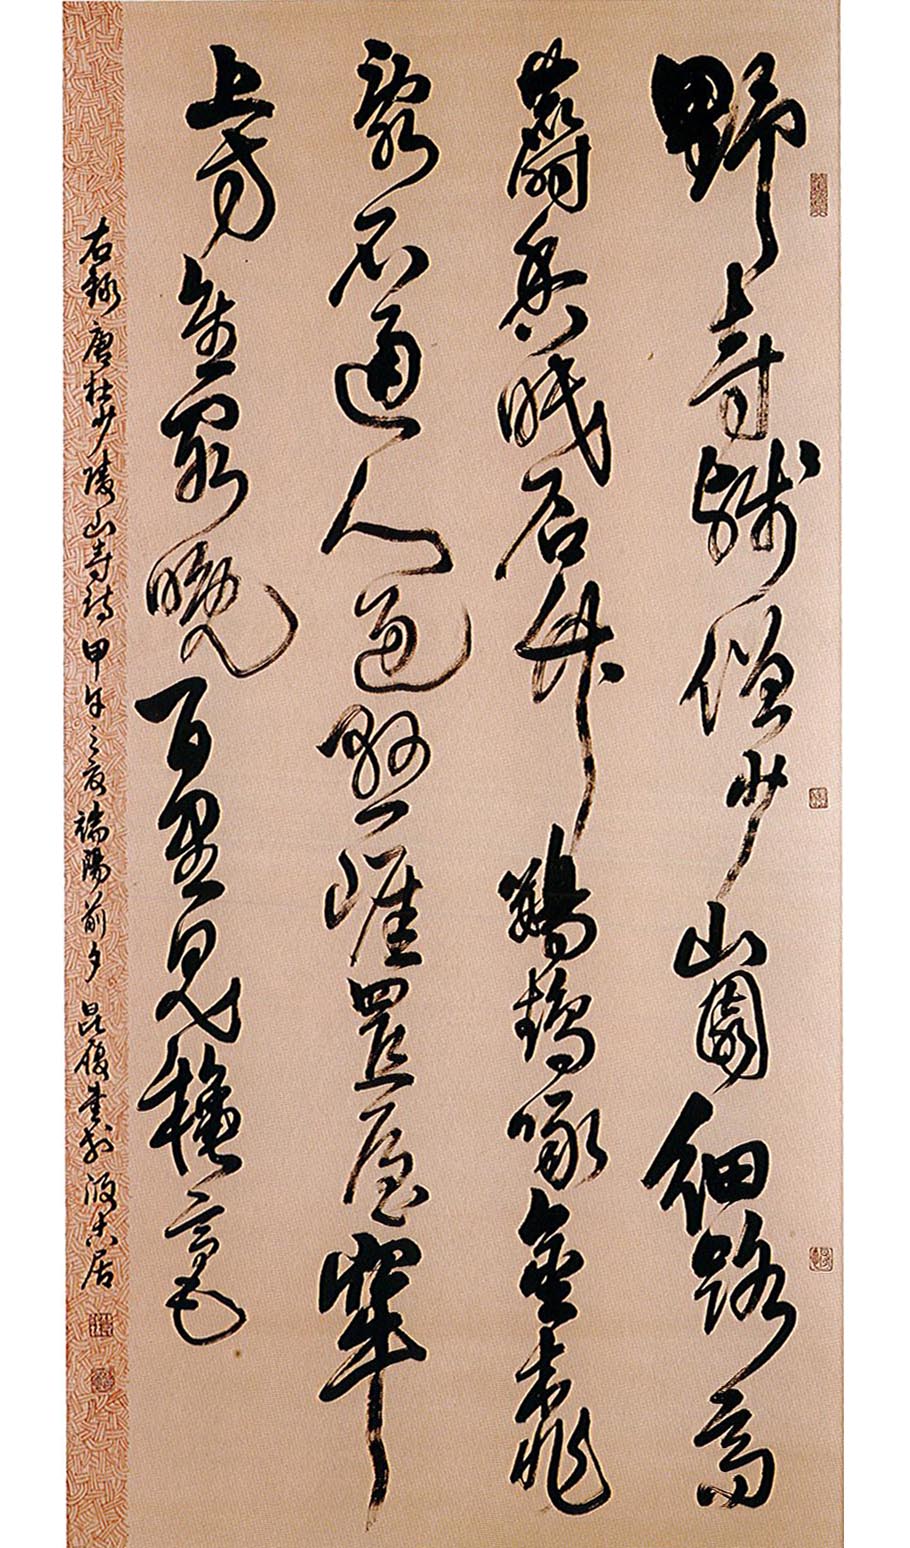 野寺殘僧少山園細路高
麝香眠石竹鸚鵡啄金桃
亂石通人過懸崖置屋牢
上方重閣晚百里見穐毫
右錄唐杜少陵山寺詩甲午之夏端陽前夕書於居